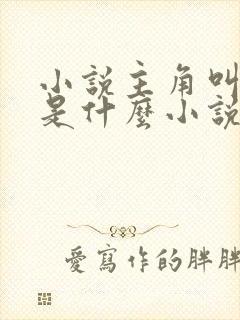 小説主角叫
是什麼小說
愛寫作的胖胖